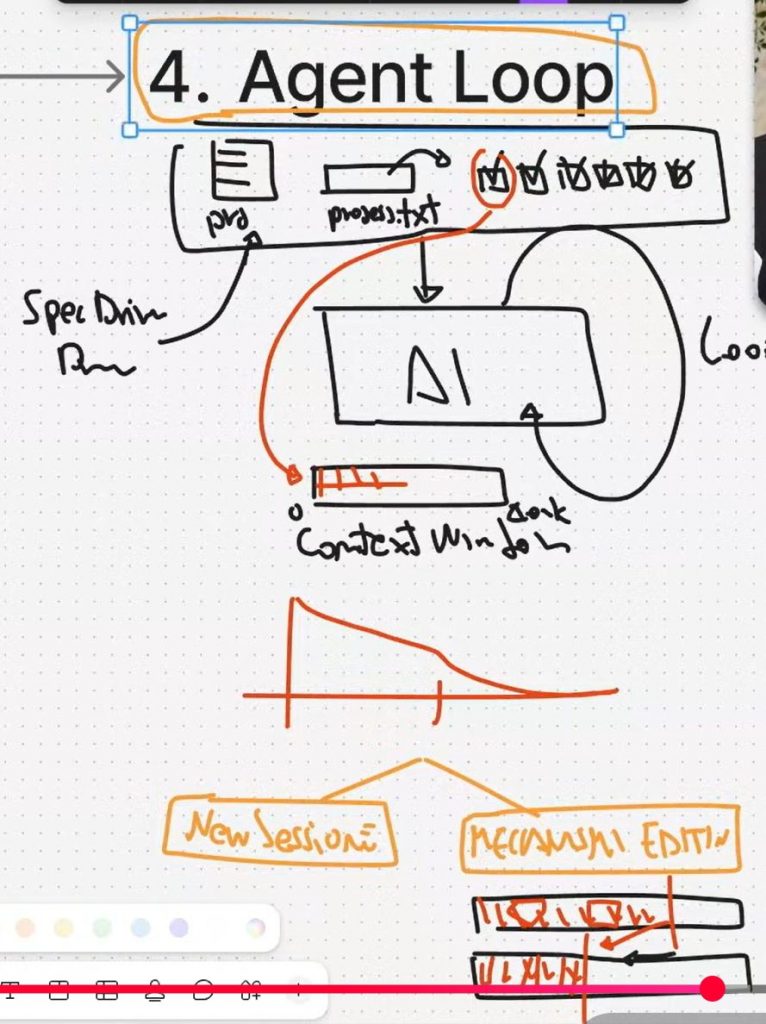 4. Agent Loop
prd
progess.txt
Spec Driven
AI
0
Context Window
New Sessione
MECCANISMI EDITIN
T